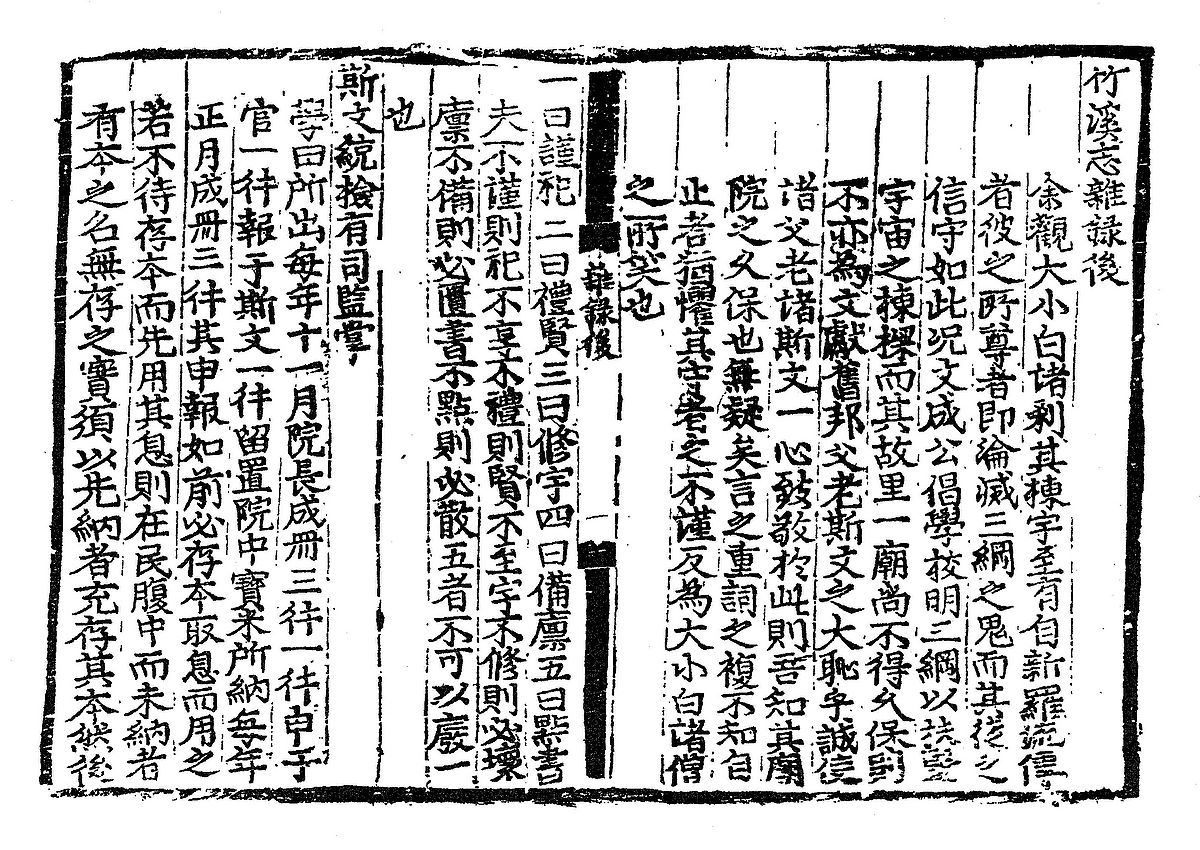 竹溪志雜錄後
余觀大小白諸刹其棟宇至有自新羅流傳
者彼之所尊者即淪滅三綱之鬼而其從之
信守如此况文成公倡學校明三綱以扶竪
宇宙之棟樑而其故里一廟尚不得久保則
不亦爲文獻舊邦父老斯文之大恥乎誠使
諸父老諸斯文一心致敬於此則吾知其廟
院之久保也無疑矣言之重詞之複不知自
止者猶懼其守者之不謹反爲大小白諸僧
之所笑也
雜錄後
一
一曰謹祀二曰禮賢三曰修宇四曰備廩五曰點書
夫不謹則祀不享不禮則賢不至宇不修則必壞
廩不備則必匱書不點則必散五者不可以廢一
也
斯文統捡有司監掌
學田所出每年十一月院長成冊三件一件申于
官一件報于斯文一件留置院中寶米所納每年
正月成冊三件其申報如前必存本取息而用之
若不待存本而先用其息則在民腹中而未納者
有本之名無存之實須以先納者充存其本然後